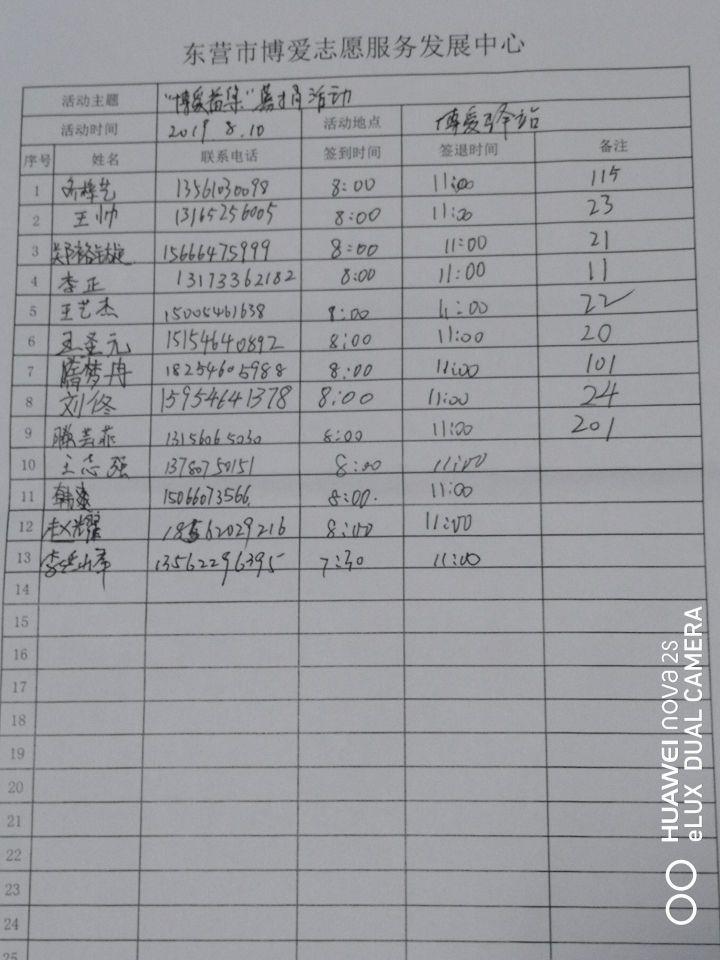 东营市博爱志愿服务发展中心
活动主题 "博爱益集"募捐活动
活动时间 2019 8.10 活动地点 博爱驿站
序号 姓名 联系电话 签到时间 签退时间 备注
1 13561030098 8:00 11:00 115
2 王帅 13165256005 8:00 11:00 23
3 15666475999 8:00 11:00 21
4 李正 13173362182 8:00 11:00 11
5 王艺杰 15005461638 8:00 11:00 22
6 王圣元 15154640892 8:00 11:00 20
7 隋梦冉 18254605988 8:00 11:00 101
8 刘佟 15954641378 8:00 11:00 24
9 滕芸菲 13156065030 8:00 11:00 201
10 王志强 13780750151 8:00 11:00
11 韩爽 15066073566 8:00 11:00
12 赵耀 18562029216 8:00 11:00
13 13562296395 7:30 11:00
14
15
16
17
18
19
20
21
22
23
24
25
HUAWEI nova 2s
eLUX DUAL CAMERA